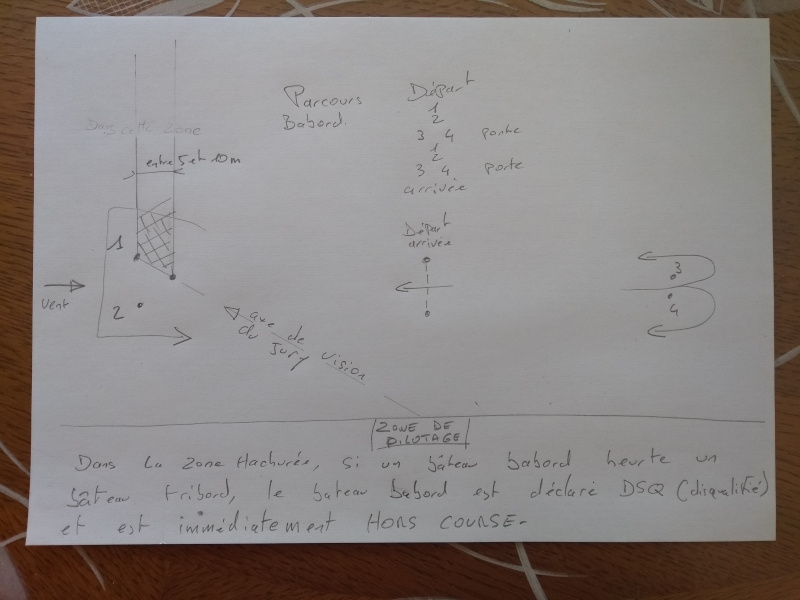 Parcours
Babord.
Départ
1
2
3 4 porte
1
2
3 4 porte
arrivée
Dans cette zone
entre 5 et 10m
1
2
Vent
Départ
arrivée
3
4
axe de vision
du Jury
ZONE DE
PILOTAGE
Dans la zone Hachurée, si un bâteau babord heurte un
bâteau tribord, le bateau babord est déclaré DSQ (disqualifié)
et est immédiatement HORS COURSE.